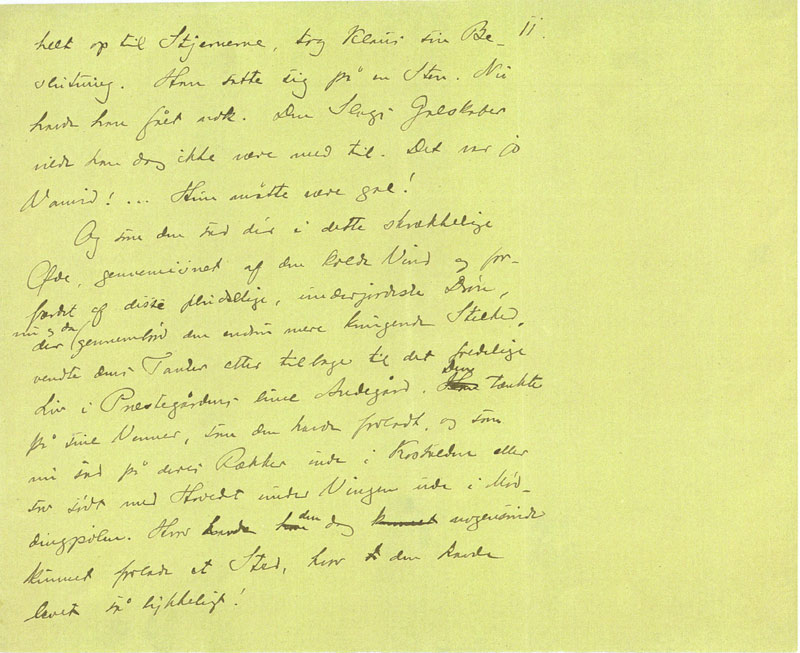 11.
helt op til Stjernerne, tog Klaus sin Be-
slutning. Han satte sig på en Sten. Nu
havde han fået nok. Den Slags Galskaber
vilde han dog ikke være med til. Det var jo
Vanvid! ... Hun måtte være gal!
Og som den sad dér i dette skrækkelige
Øde, gennemisnet af den kolde Vind og for-
færdet af disse pludselige, underjordiske Drøn,
nu og da
der gennembrød den endnu mere knugende Stilhed,
vendte dens Tanker atter tilbage til det fredelige
Liv i Præstegårdens lune Andegård. Den tænkte
på sine Venner, som den havde forladt, og som
nu sad på deres Pukker inde i Kostalden eller
sov sødt med Hovedet under Vingen ude i Mød-
dingpølen. Hvor havde han den dog kunnet nogensinde
kunnet forlade et Sted, hvor den havde
levet så lykkeligt!